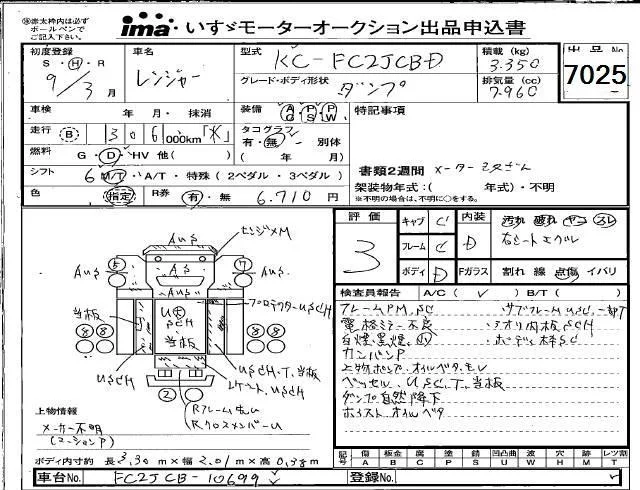 ※赤太枠内は必ず
ボールペンで
ご記入下さい。
ima いすゞモーターオークション出品申込書
初度登録
S・H・R
9/3月
車名
レンジャー
型式
KC-FC2JCBD
グレード・ボディ形状
ダンプ
積載 (kg)
3.350
排気量 (cc)
7.960
出品No
7025
車検 年・月・抹消
装備 AC PS AG PW
特記事項
走行 B 306,000km
タコグラフ
有・無・別体
( 年 月)
燃料 G・D・HV 他( )
シフト 6 M/T・A/T・特殊(2ペダル・3ペダル)
色 指定 R券 有・無 6.710円
書類2週間 メーター
架装物年式:( 年式)・不明
※不明の場合は、不明に○をする。
評価
3
キャブ C
フレーム C
ボディ D
内装 D
汚れ 破れ ヤニ スレ
右シート
Fガラス 割れ 線 点傷 イバリ
検査員報告 A/C( ✓ ) B/T( )
フレームPM,SC
・サブフレームUSC,一部T
電格ミラー不良
・アオリ内板SCH
白煙,黒煙,
・ボディ枠SC
カンバンP
上物ポンプ オイルベタ,モレ
ベッセル,USC,T,当板
ダンプ自然降下
ホイスト オイルベタ
AuS AuS
センジメM
AuS AuS
5 A S 7
プロテクターUSCH
当板
USCH
当板
8 8 8 8
USCH
USCH・T,当板
USCH
2
Rフレーム曲
RクロスメンバーU
上物情報
メーカー不明
ボディ内寸約 長3.30m×幅2.01m×高0.38m
記号
傷 A
板金 B
腐 C
塗 P
錆 S
凹凸曲 U
波 W
穴 H
外 M
レツ損 T
車台No. FC2JCB-10699
登録No.